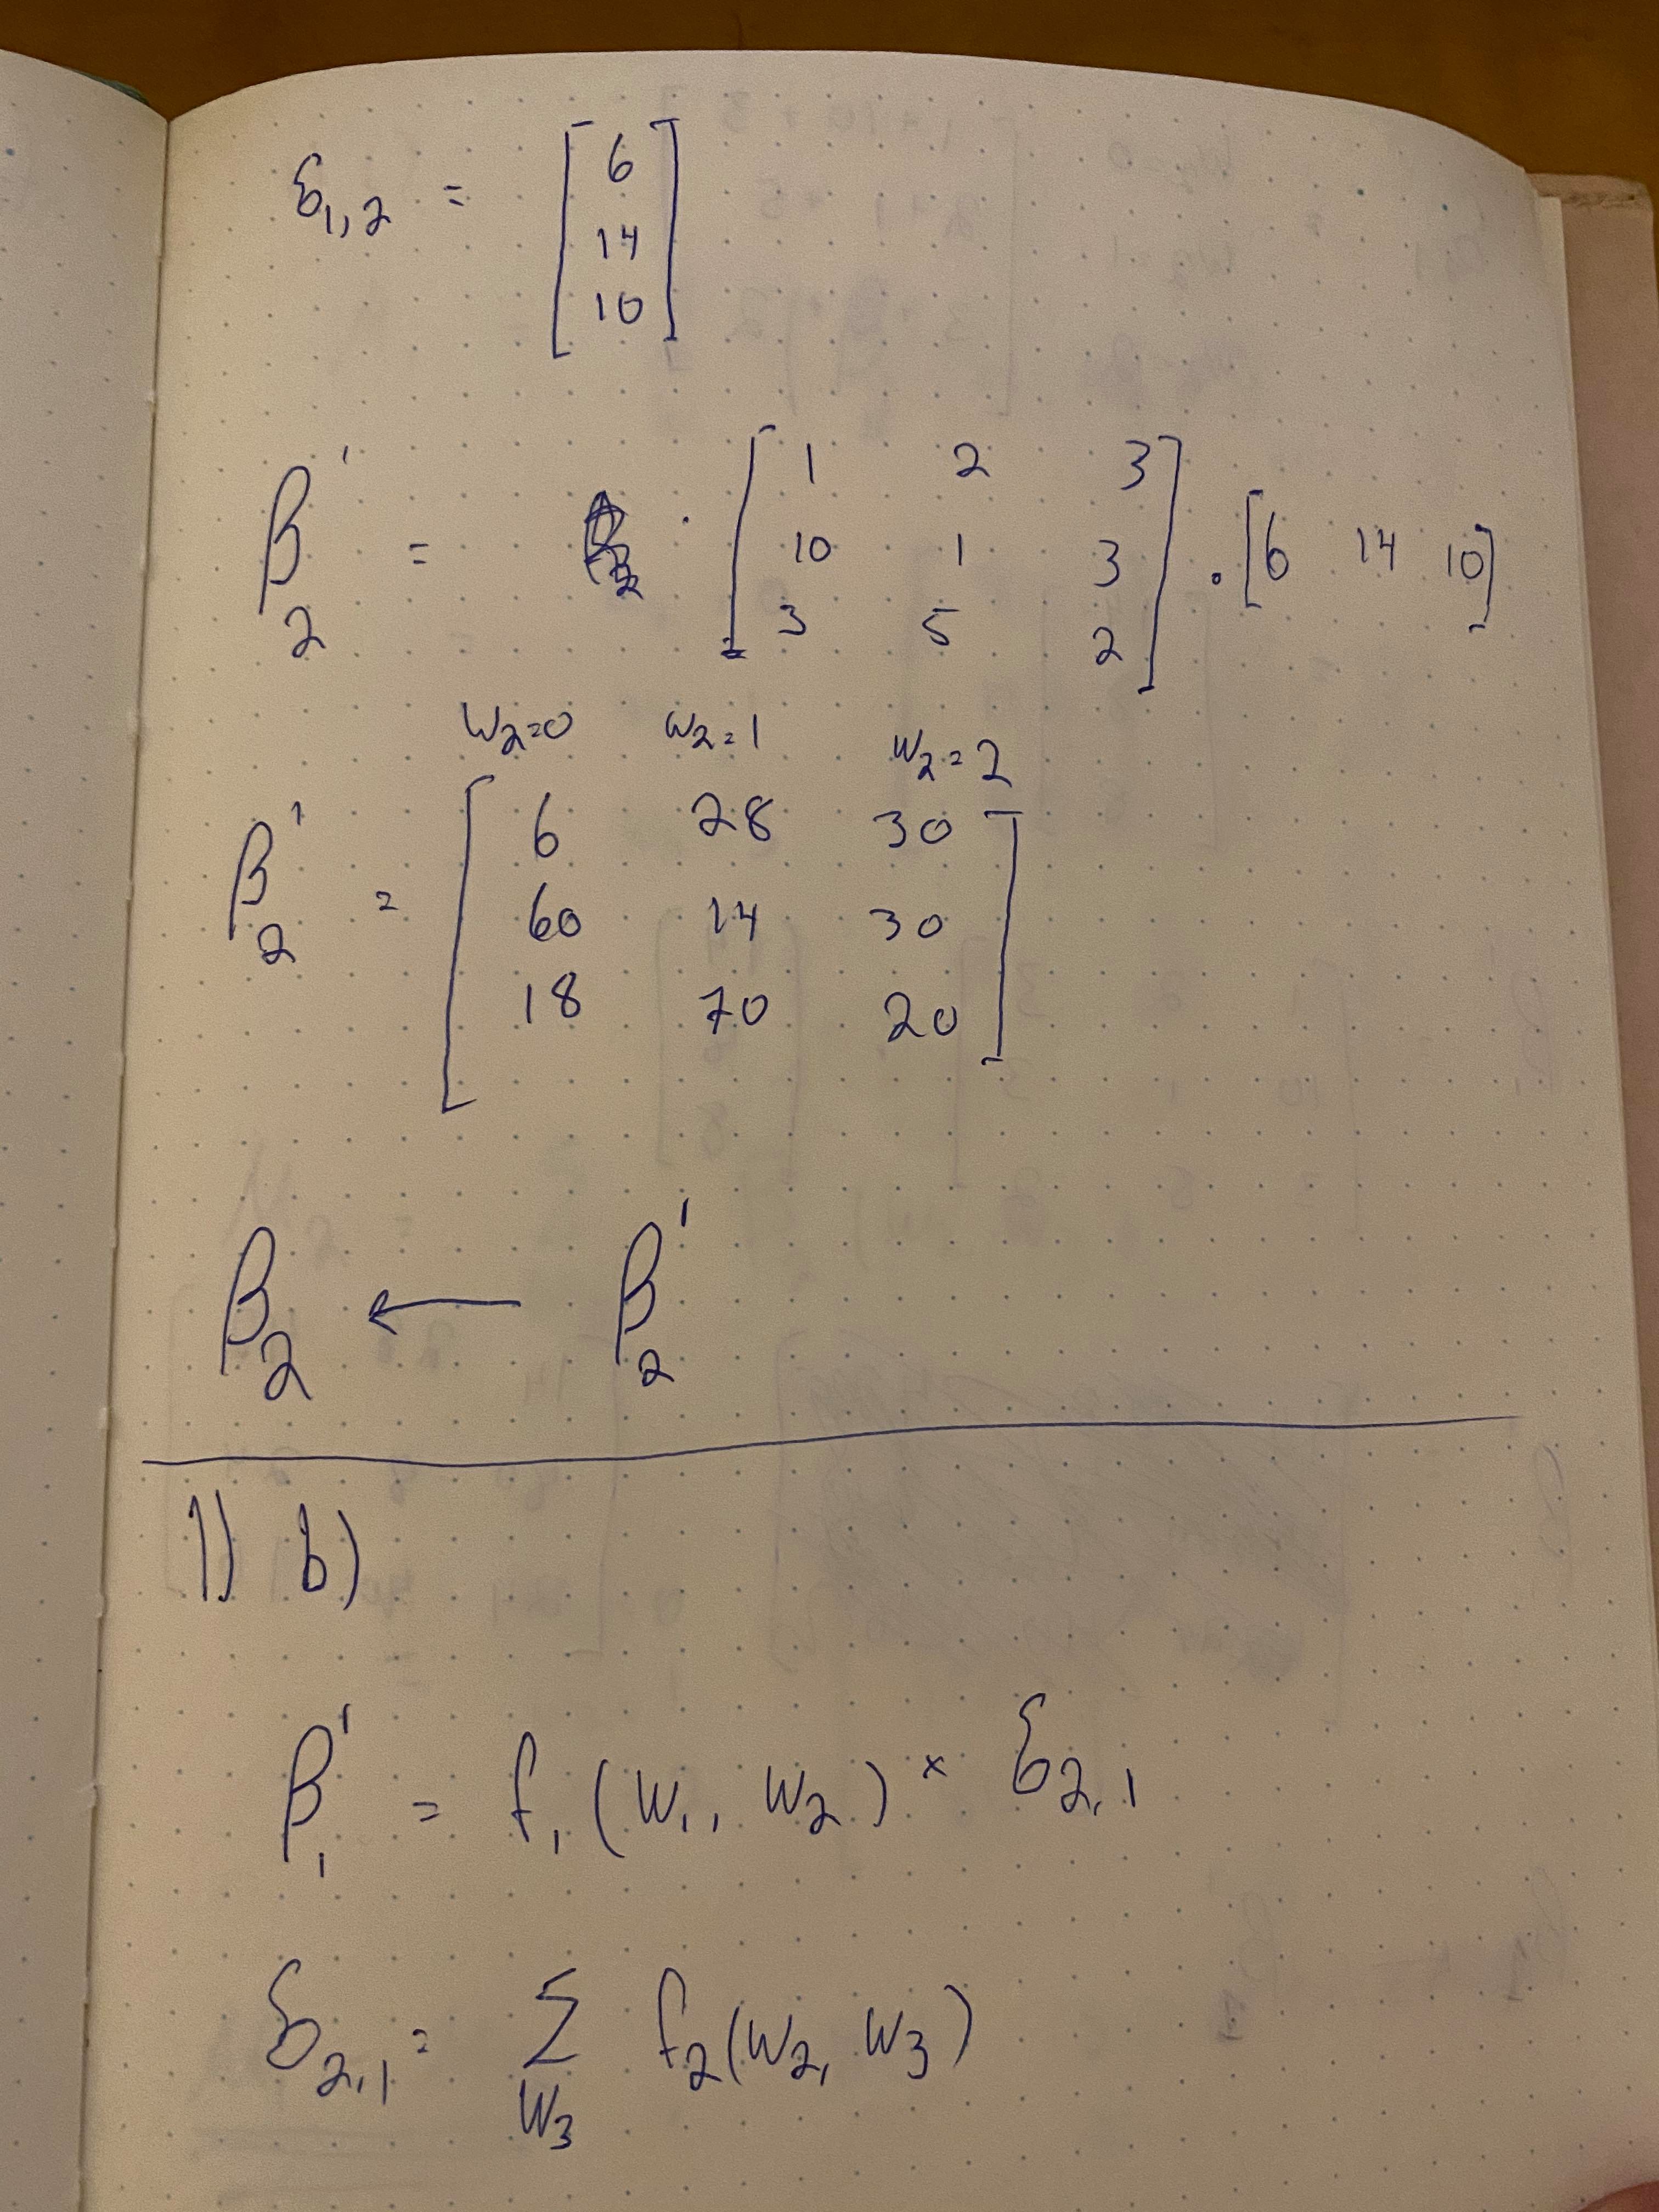 δ₁,₂ = [6 14 10]
β₂' = · [1 2 3
10 1 3
3 5 2] · [6 14 10]
W₂=0 W₂=1 W₂=2
β₂' = [6 28 30
60 14 30
18 70 20]
β₂ ← β₂'
1) b)
β₁' = f₁(W₁, W₂) × δ₂,₁
δ₂,₁ = Σ_W₃ f₂(W₂, W₃)